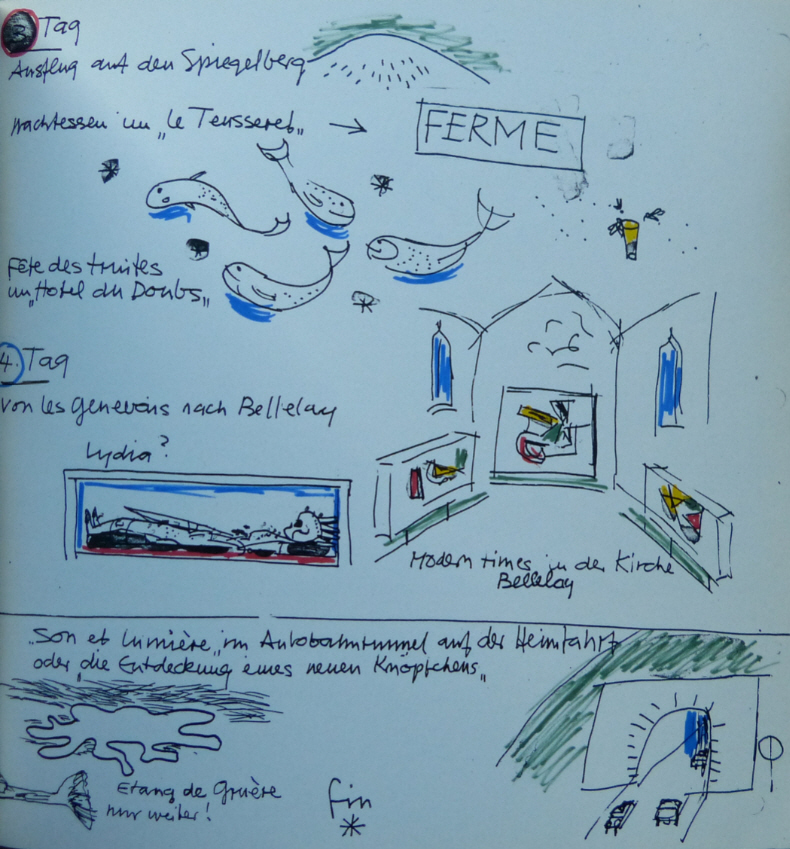 3 Tag
Ausflug auf den Spiegelberg
Nachtessen im „le Teusseret" → FERME
Fête des truites
im „Hotel du Doubs"
4. Tag
Von les Genevéns nach Bellelay
Lydia?
Modern times in der Kirche
Bellelay
„Son et lumière" im Autobahntunnel auf der Heimfahrt
oder „die Entdeckung eines neuen Knöpfchens"
Etang de Gruère
nur weiter!
fin